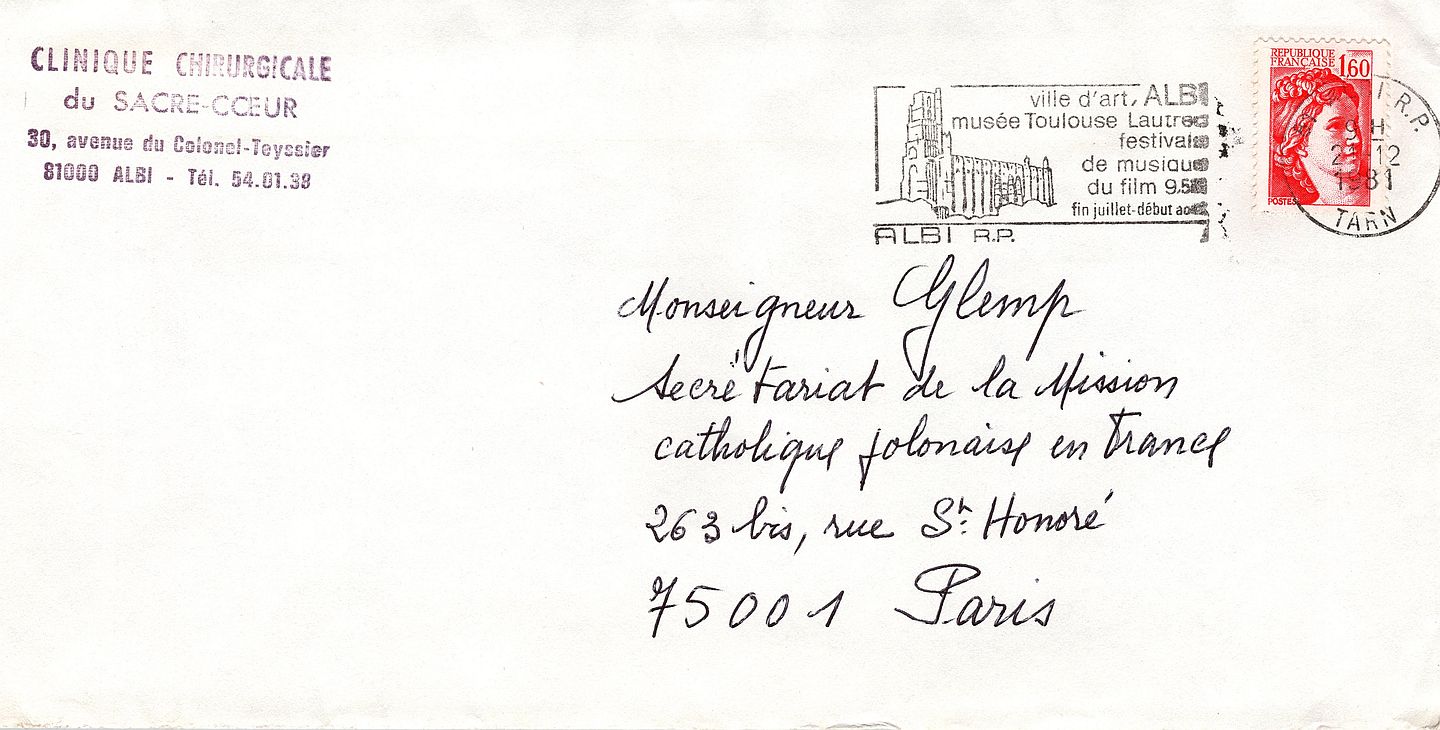 CLINIQUE CHIRURGICALE
du SACRE-CŒUR
30, avenue du Colonel-Teyssier
81000 ALBI - Tél. 54.01.38
ville d'art, ALBI
musée Toulouse Lautrec
festivals
de musique
du film 9,5
fin juillet-début
ALBI R.P.
REPUBLIQUE
FRANÇAISE 1,60
POSTES
R.P.
9 H
12
1981
TARN
Monseigneur Glemp
Secrétariat de la Mission
catholique polonaise en France
263 bis, rue St. Honoré
75001 Paris